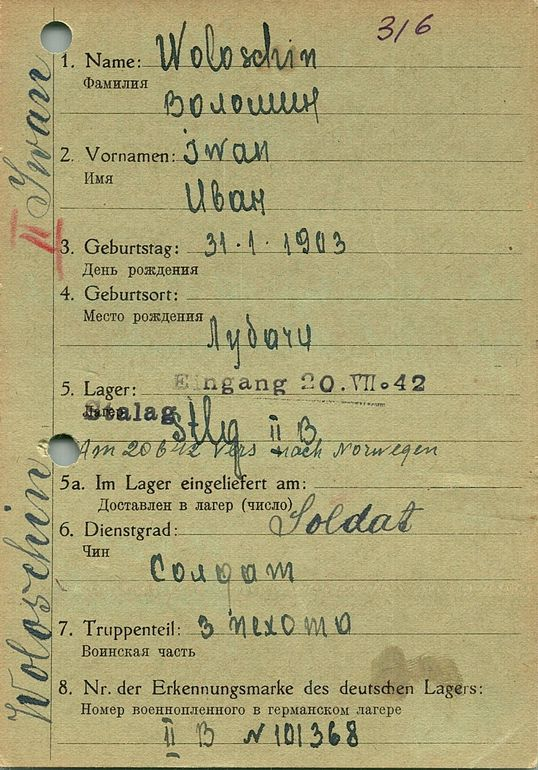 316
1. Name: Woloschin
Фамилия
Волошин
2. Vornamen: Iwan
Имя
Иван
II
3. Geburtstag: 31.1.1903
День рождения
4. Geburtsort:
Место рождения
Лубачи
5. Lager: Eingang 20.VII.42
Лагерь Stalag Stlg II B
Am 20 6 42 Vers nach Norwegen
5a. Im Lager eingeliefert am:
Доставлен в лагер (число)
6. Dienstgrad: Soldat
Чин
Солдат
7. Truppenteil: з пехота
Воинская часть
8. Nr. der Erkennungsmarke des deutschen Lagers:
Номер военнопленного в германском лагере
II B N 101368
Woloschin Iwan